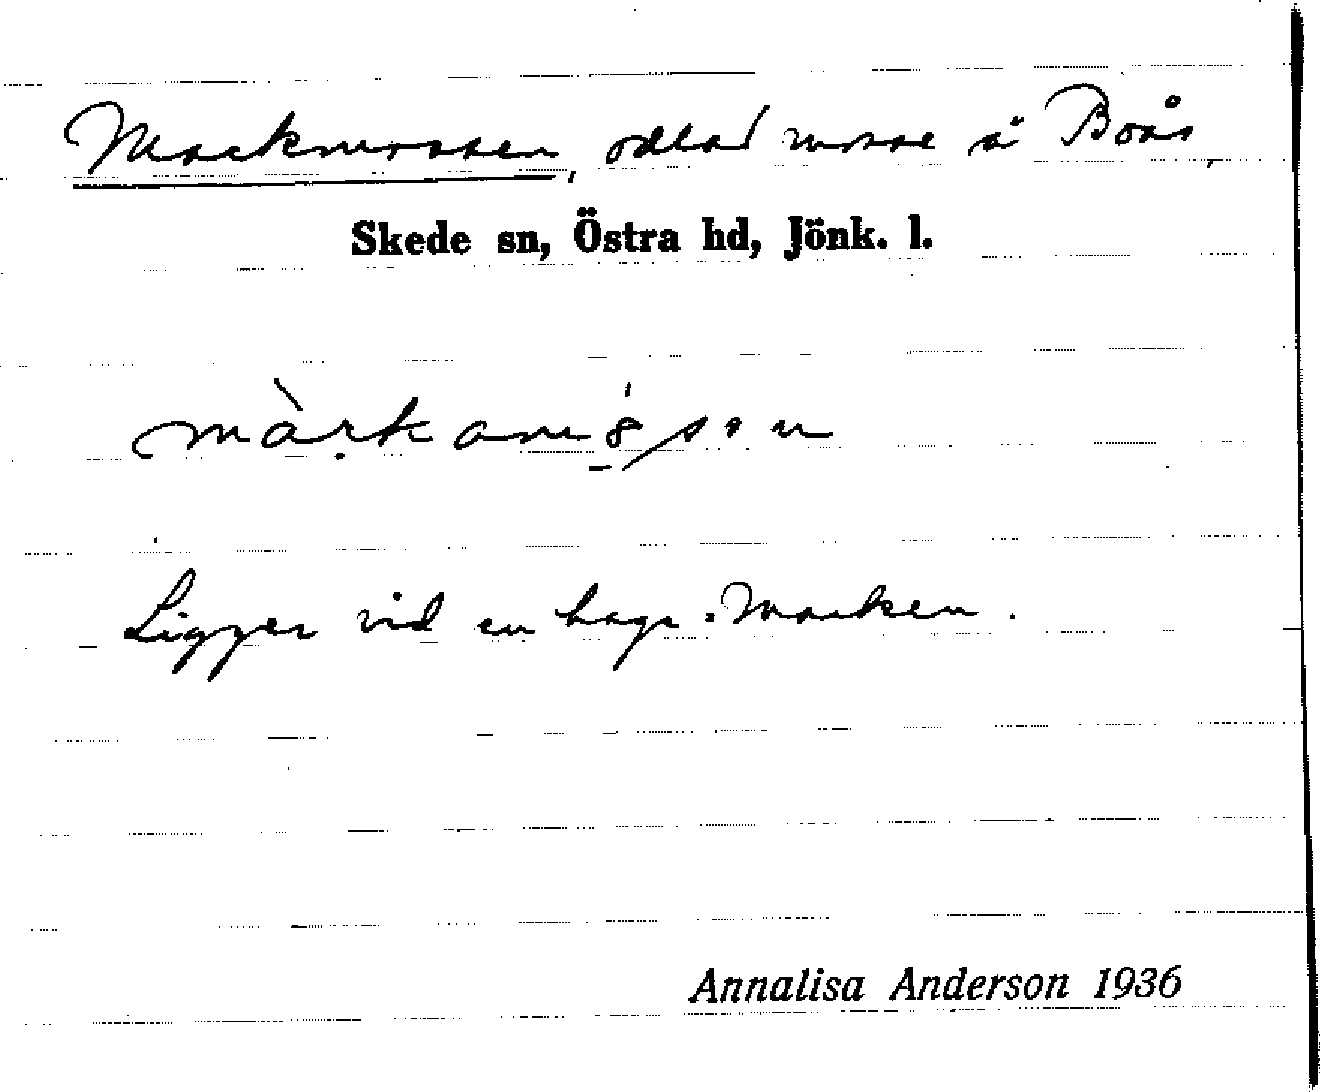 Markmossen, odlad mosse å Boås,
Skede sn, Östra hd, Jönk. l.
Ligger vid en hage: Marken.
Annalisa Anderson 1936